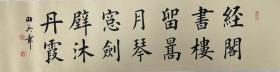 經閣
書樓
留暠
月琴
窓劍
壁沐
丹霞
田英章